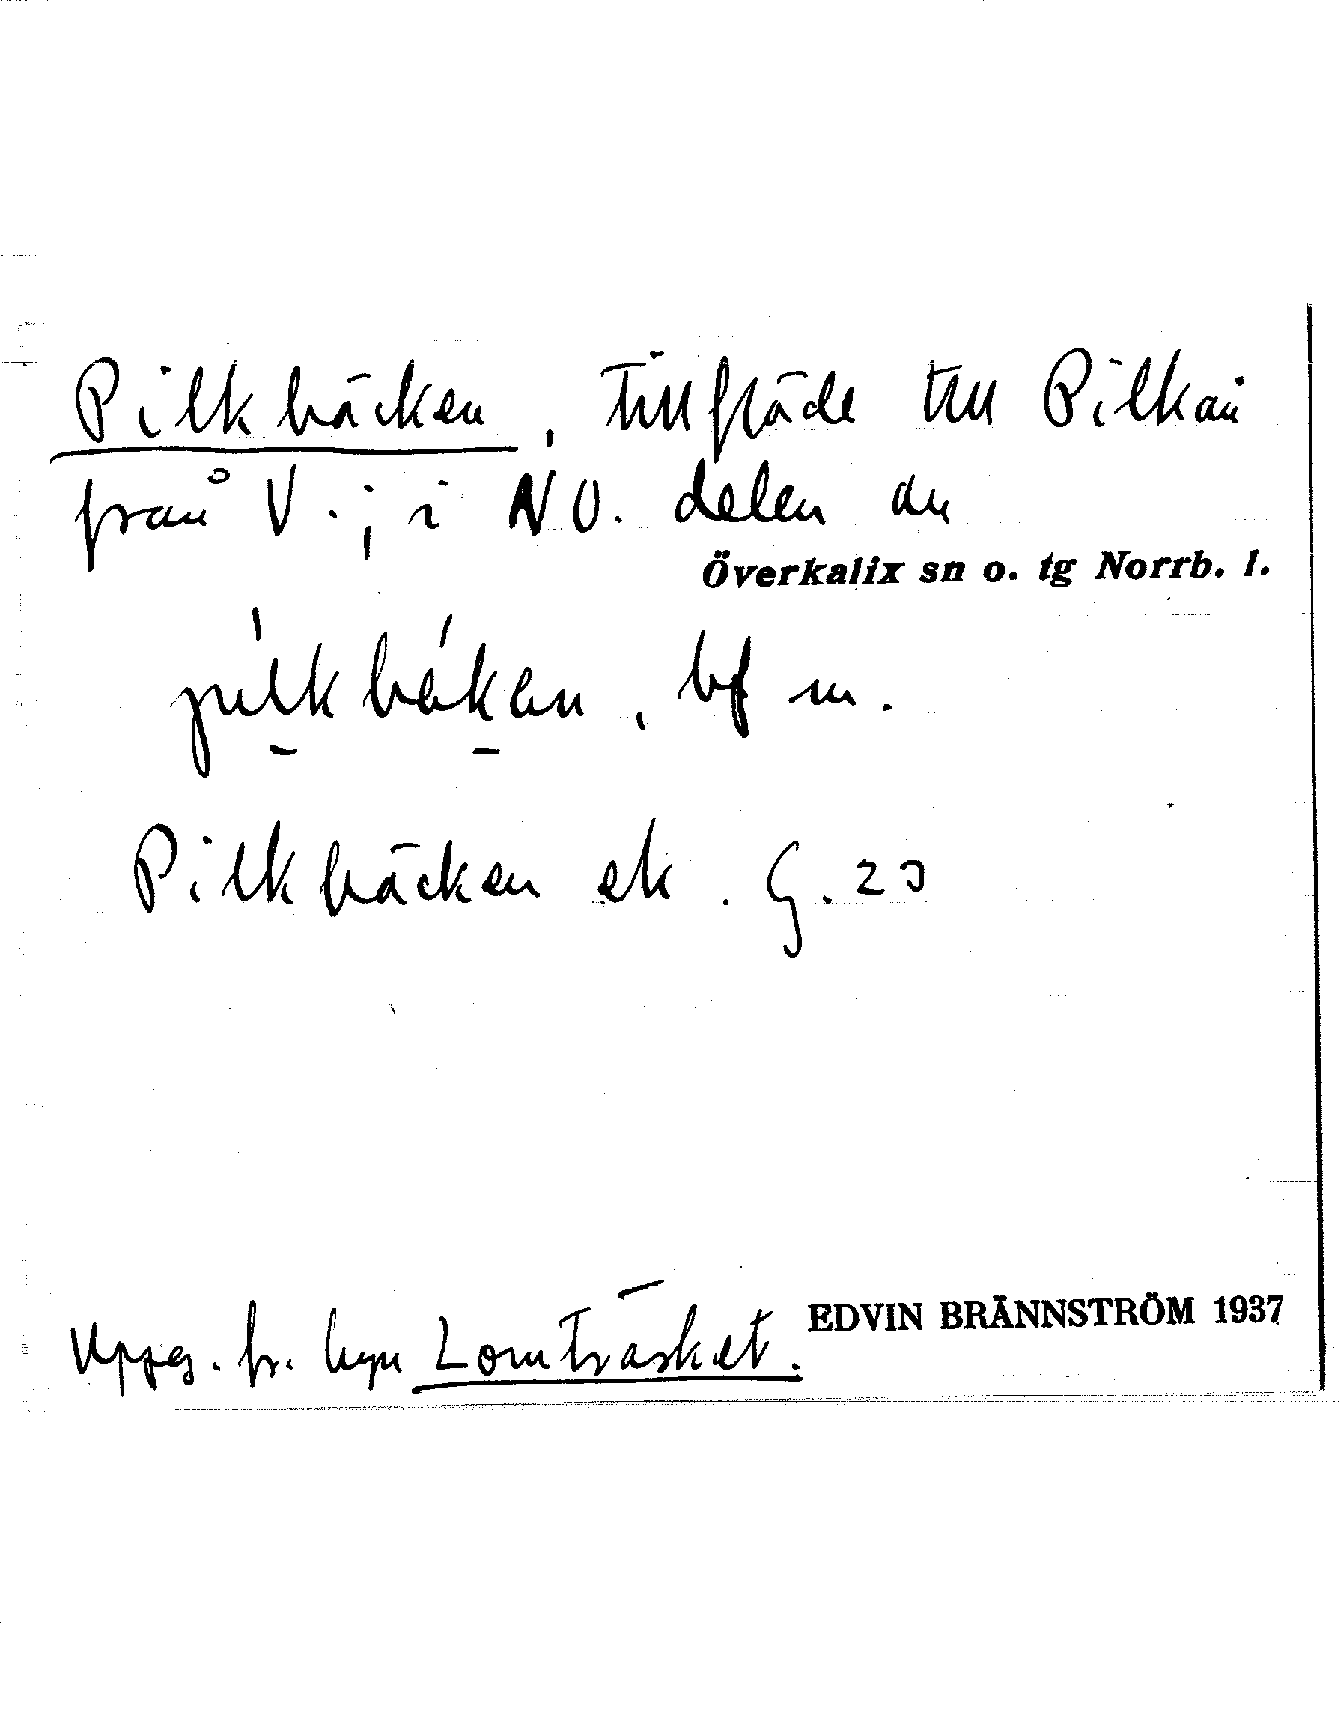 Pilkbäcken, tillflöde till Pilkån
från V.; i NO. delen av
Överkalix sn o. tg Norrb. l.
bf m.
Pilkbäcken ek. G. 23
Uppg. fr. byn Lomträsket.
EDVIN BRÄNNSTRÖM 1937